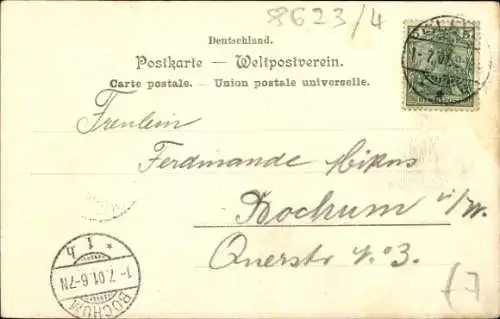 8623/4
Deutschland.
Postkarte — Weltpostverein.
Carte postale. – Union postale universelle.
Freulein
Ferdinande Mikus
Bochum i/W.
Querstr No. 3.
* 1 h
1-7.01.6-7N
BOCHUM
5
1-7.01
[7